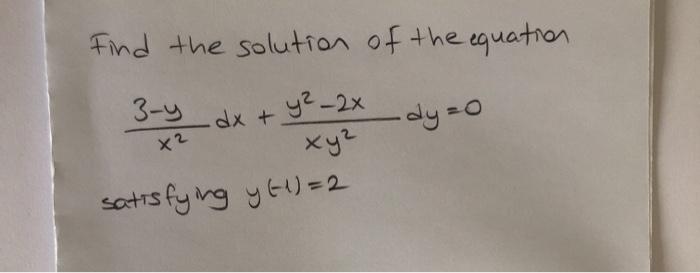 Find the solution of the equation
3-y/x² dx + y²-2x/xy² dy=0
satisfying y(-1)=2